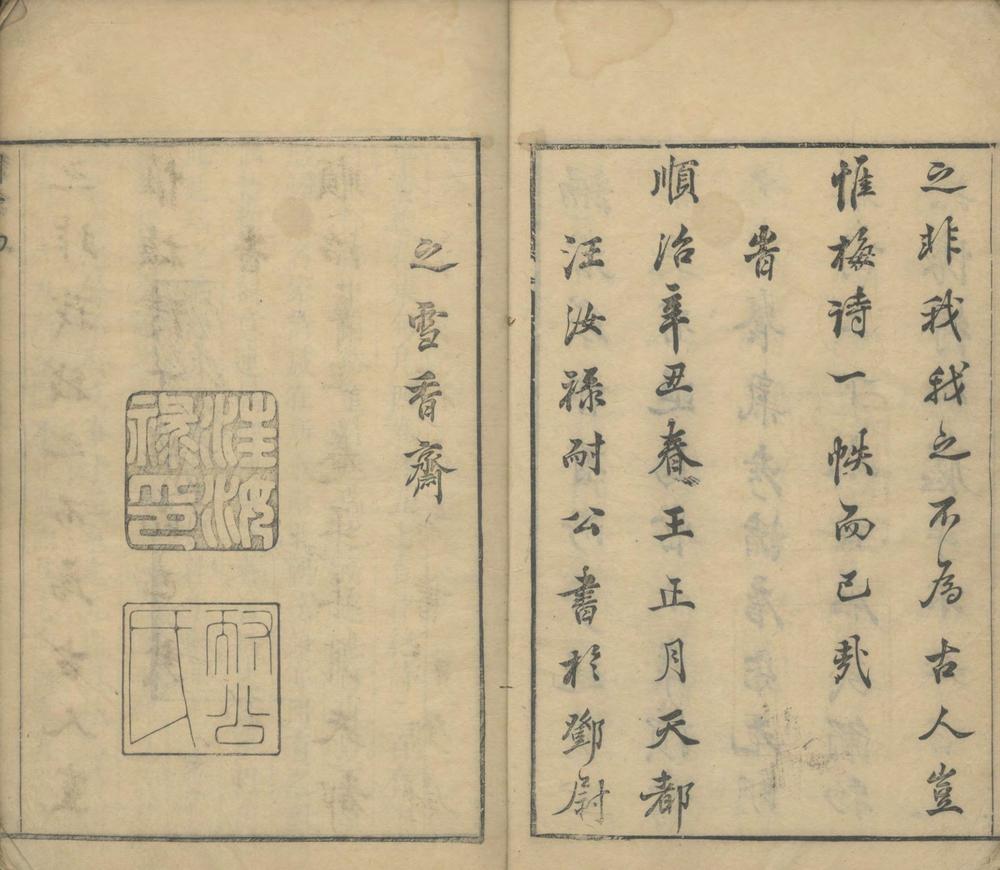 之非我我之不為古人豈
惟梅詩一帙而已哉
旹
順治辛丑春王正月天都
汪汝祿耐公書於鄧尉
之雪香齋
汪汝祿印
耐公氏